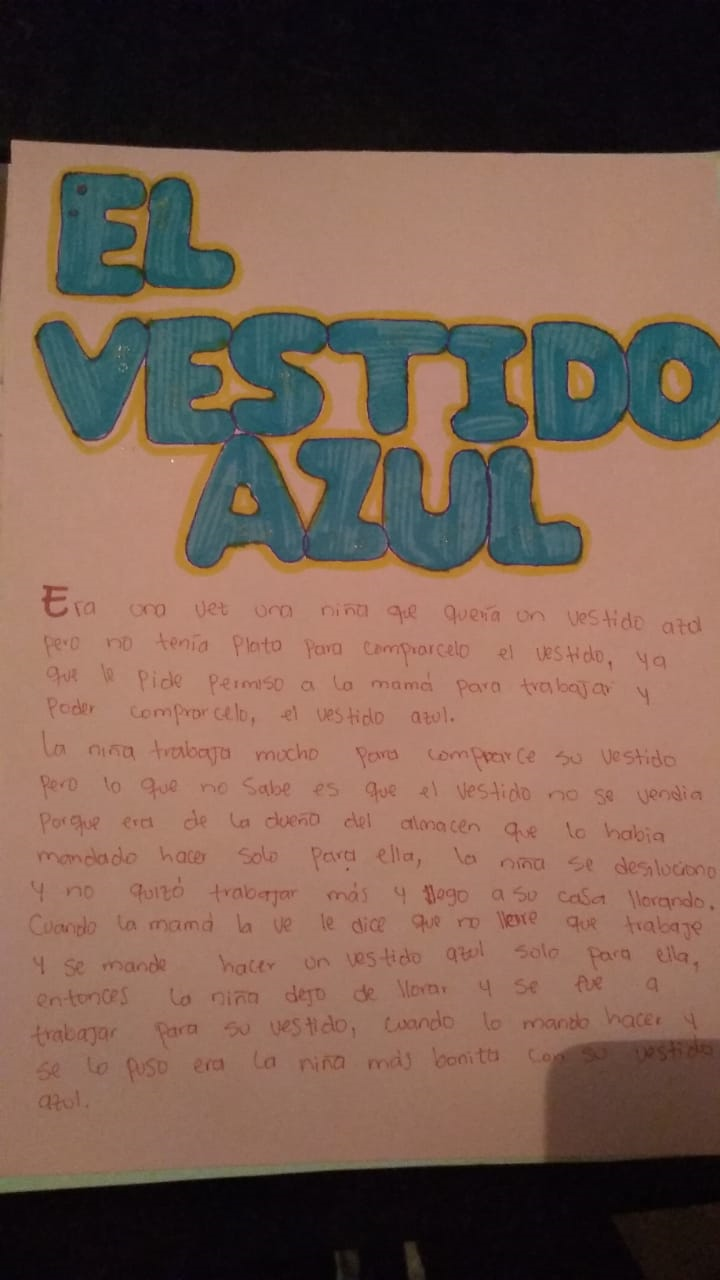 EL
VESTIDO
AZUL
Era una vez una niña que quería un vestido azul
pero no tenía plata para comprarcelo el vestido, ya
que le pide permiso a la mamá para trabajar y
poder comprarcelo, el vestido azul.
la niña trabaja mucho para comprarce su vestido
pero lo que no sabe es que el vestido no se vendia
porque era de la dueña del almacen que lo habia
mandado hacer solo para ella, la niña se desiluciono
y no quizó trabajar más y llego a su casa llorando.
Cuando la mamá la ve le dice que no llore que trabaje
y se mande hacer un vestido azul solo para ella,
entonces la niña dejo de llorar y se fue a
trabajar para su vestido, cuando lo mando hacer y
se lo puso era la niña más bonita con su vestido
azul.